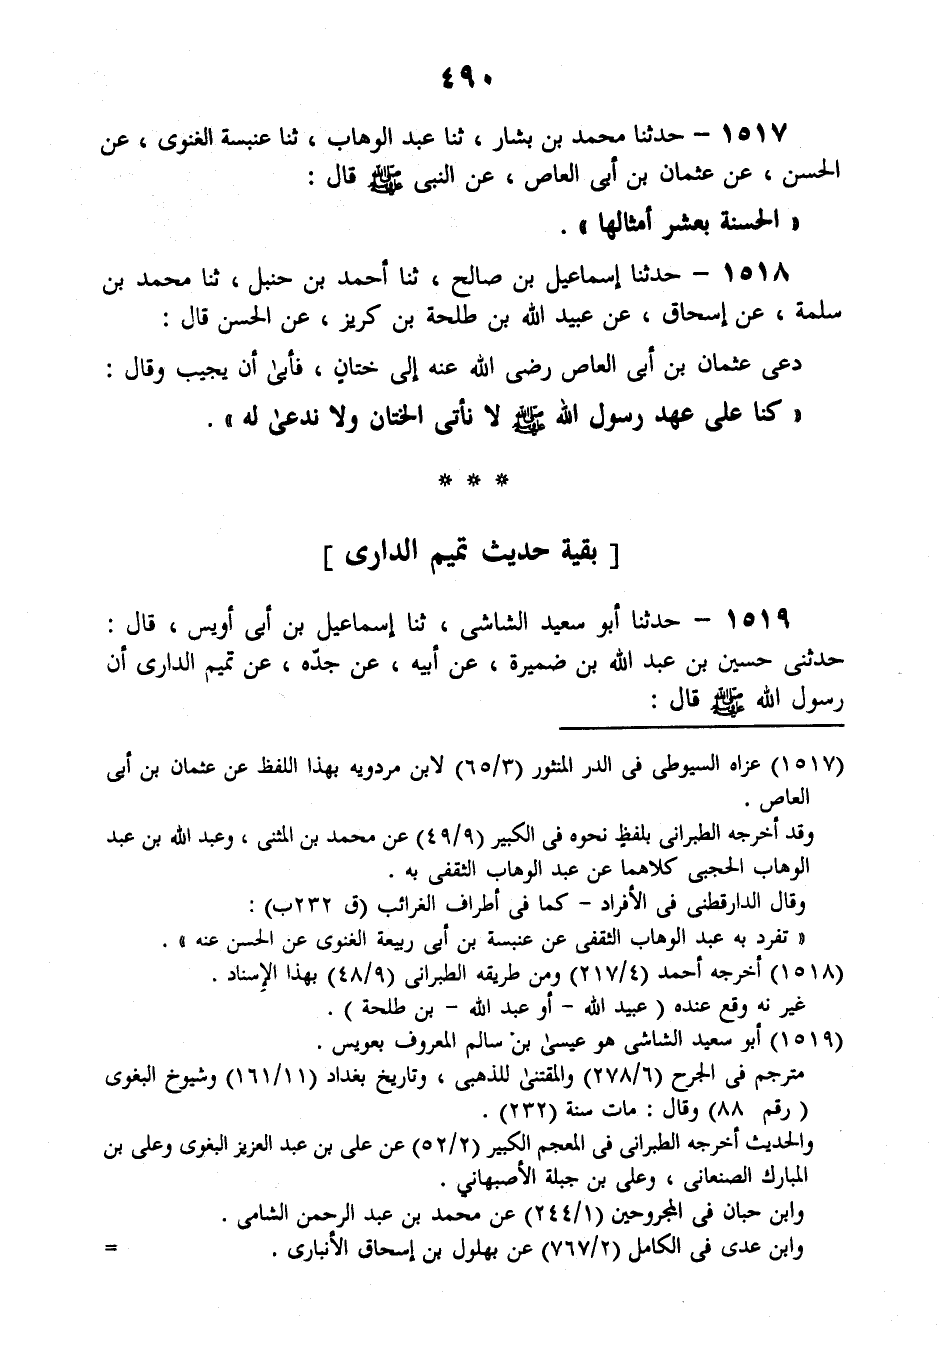 ٤٩٠
١٥١٧ – حدثنا محمد بن بشار ، ثنا عبد الوهاب ، ثنا عنبسة الغنوى ، عن
الحسن ، عن عثمان بن أبى العاص ، عن النبى ﷺ قال :
« الحسنة بعشر أمثالها » .
١٥١٨ – حدثنا إسماعيل بن صالح ، ثنا أحمد بن حنبل ، ثنا محمد بن
سلمة ، عن إسحاق ، عن عبيد الله بن طلحة بن كريز ، عن الحسن قال :
دعى عثمان بن أبى العاص رضى الله عنه إلى ختانٍ ، فأبىٰ أن يجيب وقال :
« كنا على عهد رسول الله ﷺ لا نأتى الختان ولا ندعىٰ له » .
* * *
[ بقية حديث تميم الدارى ]
١٥١٩ – حدثنا أبو سعيد الشاشى ، ثنا إسماعيل بن أبى أويس ، قال :
حدثنى حسين بن عبد الله بن ضميرة ، عن أبيه ، عن جدّه ، عن تميم الدارى أن
رسول الله ﷺ قال :
(١٥١٧) عزاه السيوطى فى الدر المنثور (٦٥/٣) لابن مردويه بهذا اللفظ عن عثمان بن أبى
العاص .
وقد أخرجه الطبرانى بلفظٍ نحوه فى الكبير (٤٩/٩) عن محمد بن المثنى ، وعبد الله بن عبد
الوهاب الحجبى كلاهما عن عبد الوهاب الثقفى به .
وقال الدارقطنى فى الأفراد – كما فى أطراف الغرائب (ق ٢٣٢ب) :
« تفرد به عبد الوهاب الثقفى عن عنبسة بن أبى ربيعة الغنوى عن الحسن عنه » .
(١٥١٨) أخرجه أحمد (٢١٧/٤) ومن طريقه الطبرانى (٤٨/٩) بهذا الإسناد .
غير نه وقع عنده ( عبيد الله – أو عبد الله – بن طلحة ) .
(١٥١٩) أبو سعيد الشاشى هو عيسىٰ بن سالم المعروف بعويس .
مترجم فى الجرح (٢٧٨/٦) والمقتنىٰ للذهبى ، وتاريخ بغداد (١٦١/١١) وشيوخ البغوى
( رقم ٨٨) وقال : مات سنة (٢٣٢) .
والحديث أخرجه الطبرانى فى المعجم الكبير (٥٢/٢) عن على بن عبد العزيز البغوى وعلى بن
المبارك الصنعانى ، وعلى بن جبلة الأصبهاني .
وابن حبان فى المجروحين (٢٤٤/١) عن محمد بن عبد الرحمن الشامى .
وابن عدى فى الكامل (٧٦٧/٢) عن بهلول بن إسحاق الأنبارى . =